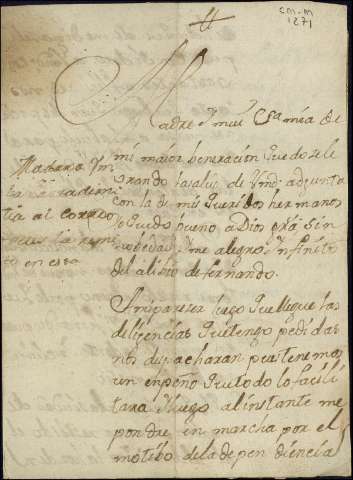 CM-M
1271
Madre y mui Sra mia de
mi maior beneracion quedo zele
brando la salud de Vmd adjunta
con la de mis queridos hermanos
io quedo bueno a Dios gra sin
nobedad y me alegro ynfinito
del alibio de fernando.
A mi pareser luego que llegue las
diligencias que tengo pedidas
nos despacharan pues tenemos
un enpeño que todo lo facili
tara y luego al instante me
pondre en marcha por el
motibo de la dependiencia
Madama
al correo
en esa